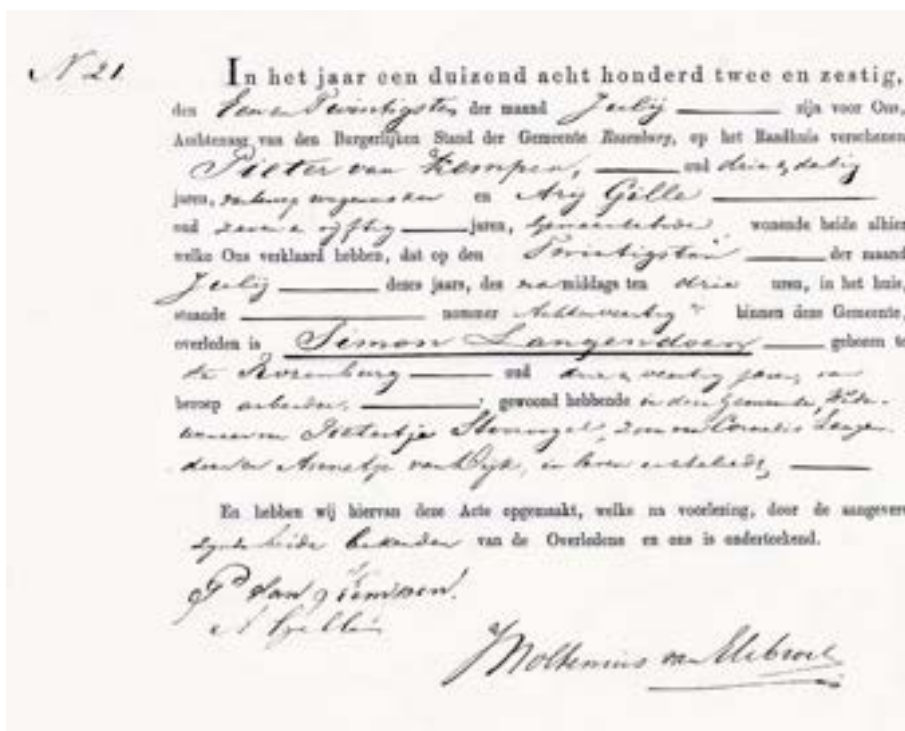 N 21
In het jaar een duizend acht honderd twee en zestig,
den een en Twintigsten der maand Julij zijn voor Ons,
Ambtenaar van den Burgerlijken Stand der Gemeente Rozenburg, op het Raadhuis verschenen
Pieter van Kempen, oud drie en dertig
jaren, van beroep wagenmaker en Arij Gelle
oud zeven en vijftig jaren, Gemeentebode, wonende beide alhier
welke Ons verklaard hebben, dat op den Twintigsten der maand
Julij dezes jaars, des namiddags ten drie uren, in het huis,
staande nommer Achtenveertig binnen deze Gemeente,
overleden is Simon Langendoen geboren te
Rozenburg oud jaren, van
beroep arbeider, gewoond hebbende in deze Gemeente,
van zoon van Cornelis Langen
doen en Annetje van Dijk,
En hebben wij hiervan deze Acte opgemaakt, welke na voorlezing, door de aangevers
zijnde beide bekenden van de Overledene en ons is onderteekend.
P van Kempen.